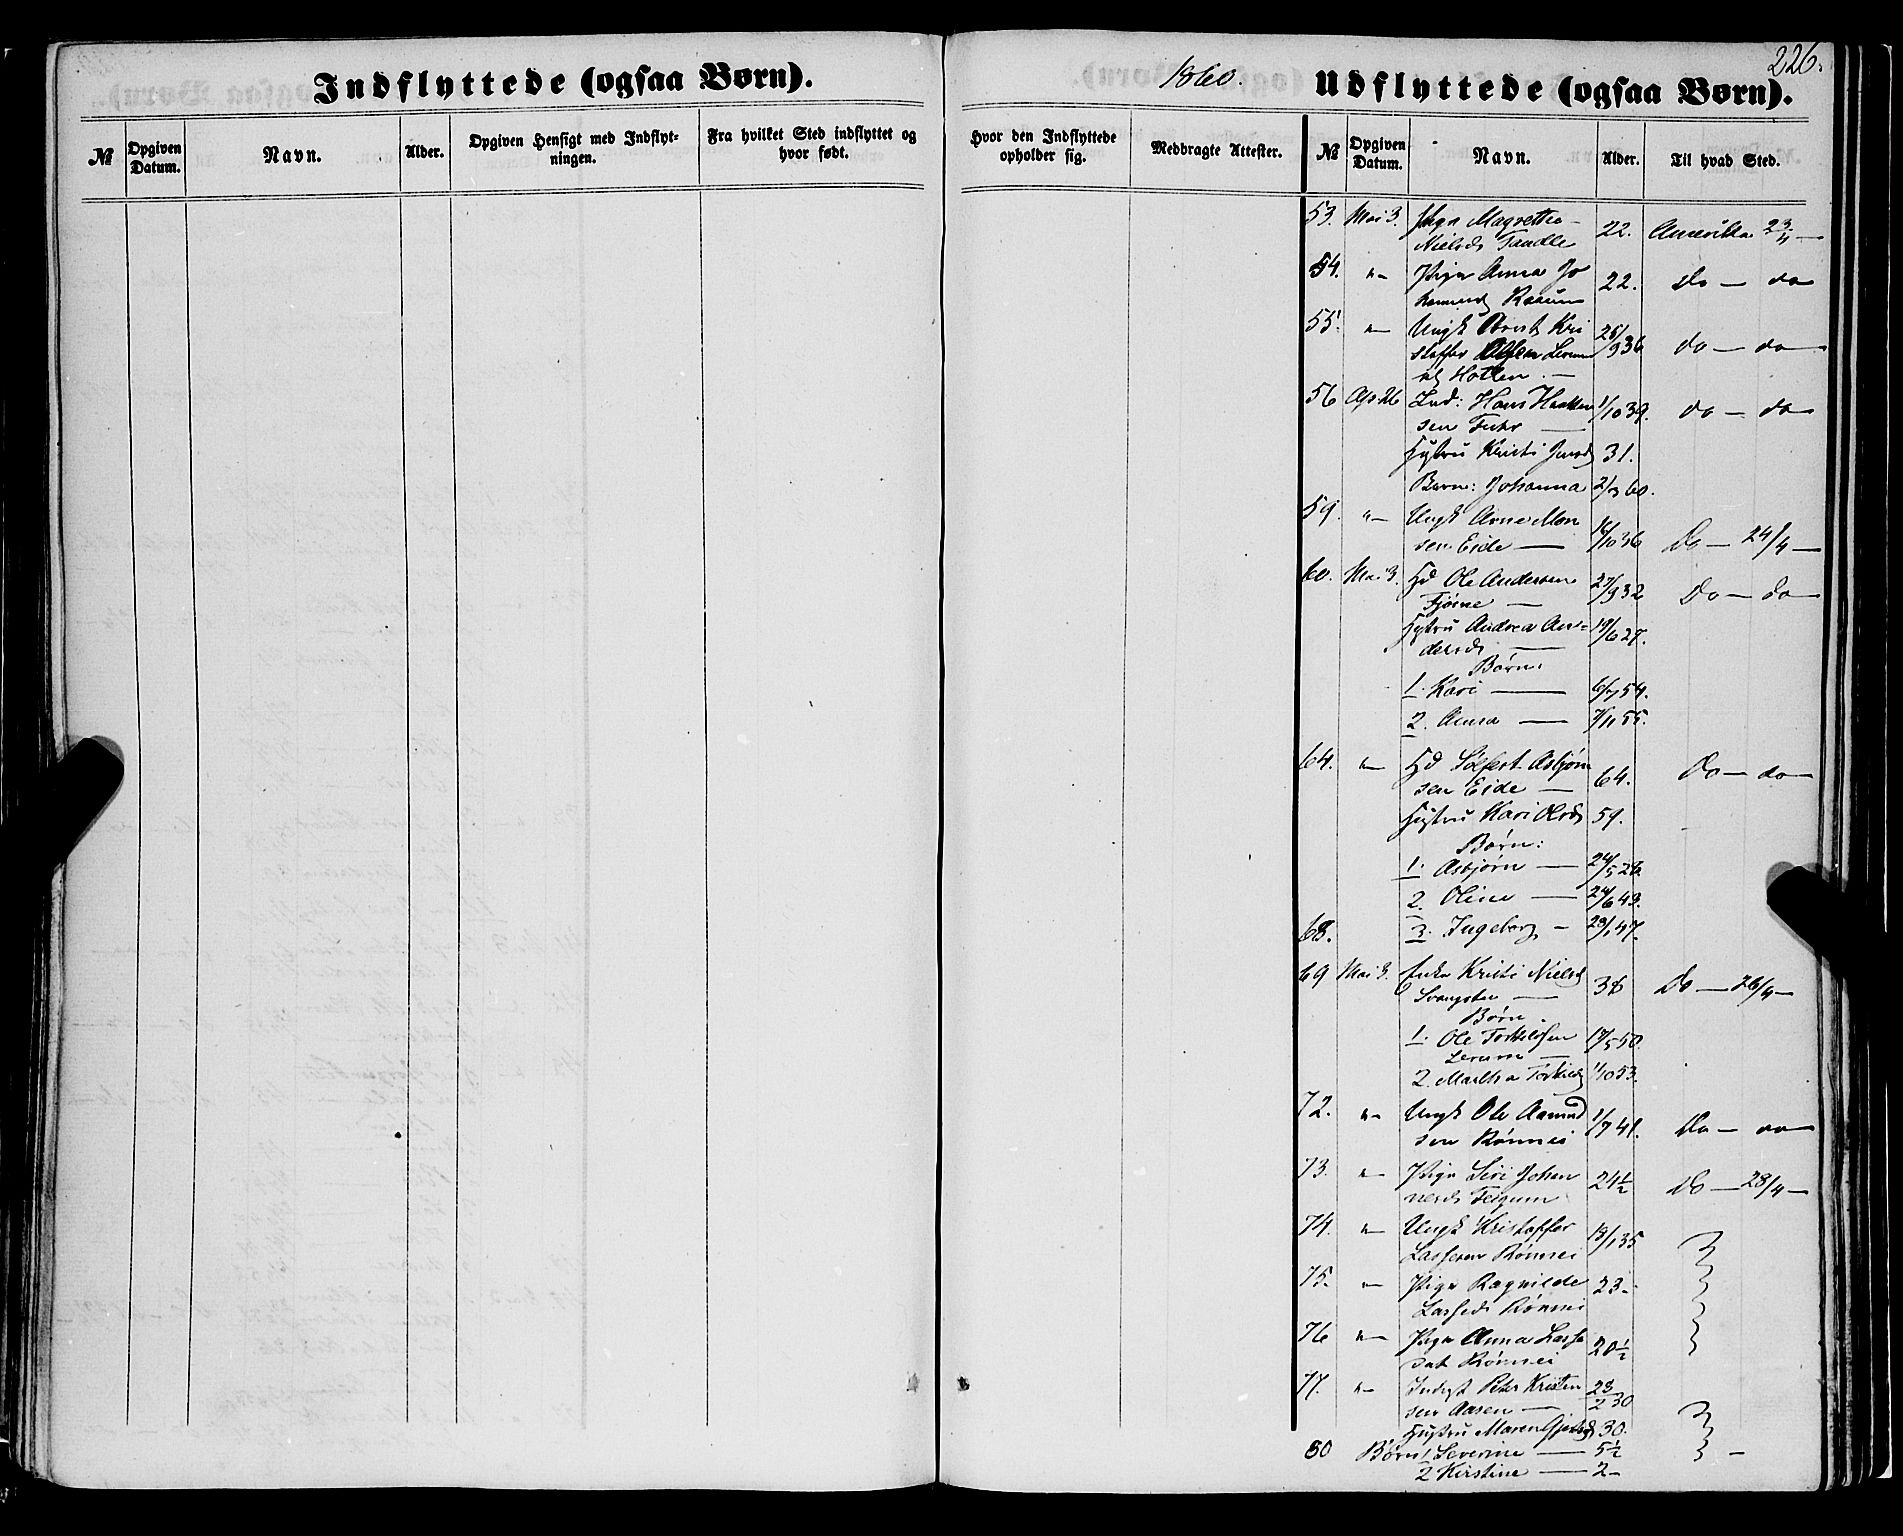 226.
Indflyttede (ogsaa Børn).
1860.
Udflyttede (ogsaa Børn).
№ Opgiven Datum. Navn. Alder. Opgiven Hensigt med Indflytningen. Fra hvilket Sted indflyttet og hvor født. Hvor den Indflyttede opholder sig. Medbragte Attester. № Opgiven Datum. Navn. Alder. Til hvad Sted.
53. Mai 3. Pige Magrethe
Nielsd 22. Amerika 23/4 —
54. "— Pige Anna Jo
22. Do — do —
55. "— Ungk Kri
stoffer 25/9 36 do — do —
56 Apr 26 Ind: Hans Haakon
sen Fuhr — 1/10 39. do — do
Hustru Kristi Jensd 31.
Barn: Johanna 60.
59. "— Ungk Arne Mon
sen Eide — 16/10 36 Do — 24/4 —
60. Mai 3. Hd Ole Andersen
— 27/9 32 Do — do —
Hustru Andrea An=
dersd — 19/6 27.
Børn:
1. Kari — 6/7 54.
2. Anna — 7/11 55.
64. "— Hd Sølfest Asbjørn
sen Eide — 64. Do — do —
Hustru Kari Olsd 59.
Børn:
1. Asbjørn — 24/5 26.
2. Oline — 24/6 43.
68. 3. Ingeborg — 23/1 47.
69 Mai 3. Enke Kristi Nielsd
— 38 Do — 26/4 —
Børn.
1. Ole Torkelsen
Lerum — 17/5 50.
2. Martha Torkield 1/10 53.
72. "— Ungk Ole Aamund
sen Rønnei 1/7 41. Do — do —
73. "— Pige Siri Johan
nesd Feigum 24½ Do — 28/4 —
74. "— Ungk Kristoffer
Lassesen Rønnei 13/1 35
75. "— Pige Ragnilde
Lassed Rønnei 23 —
76 "— Pige Anna Lasse
dat Rønnei 20½
77. "— Inderst Peter Kristen
sen Aasen — 23/2 30
Hustru Maren 30.
80 Børn 1 Severine — 5½
2 Kirstine — 2 —